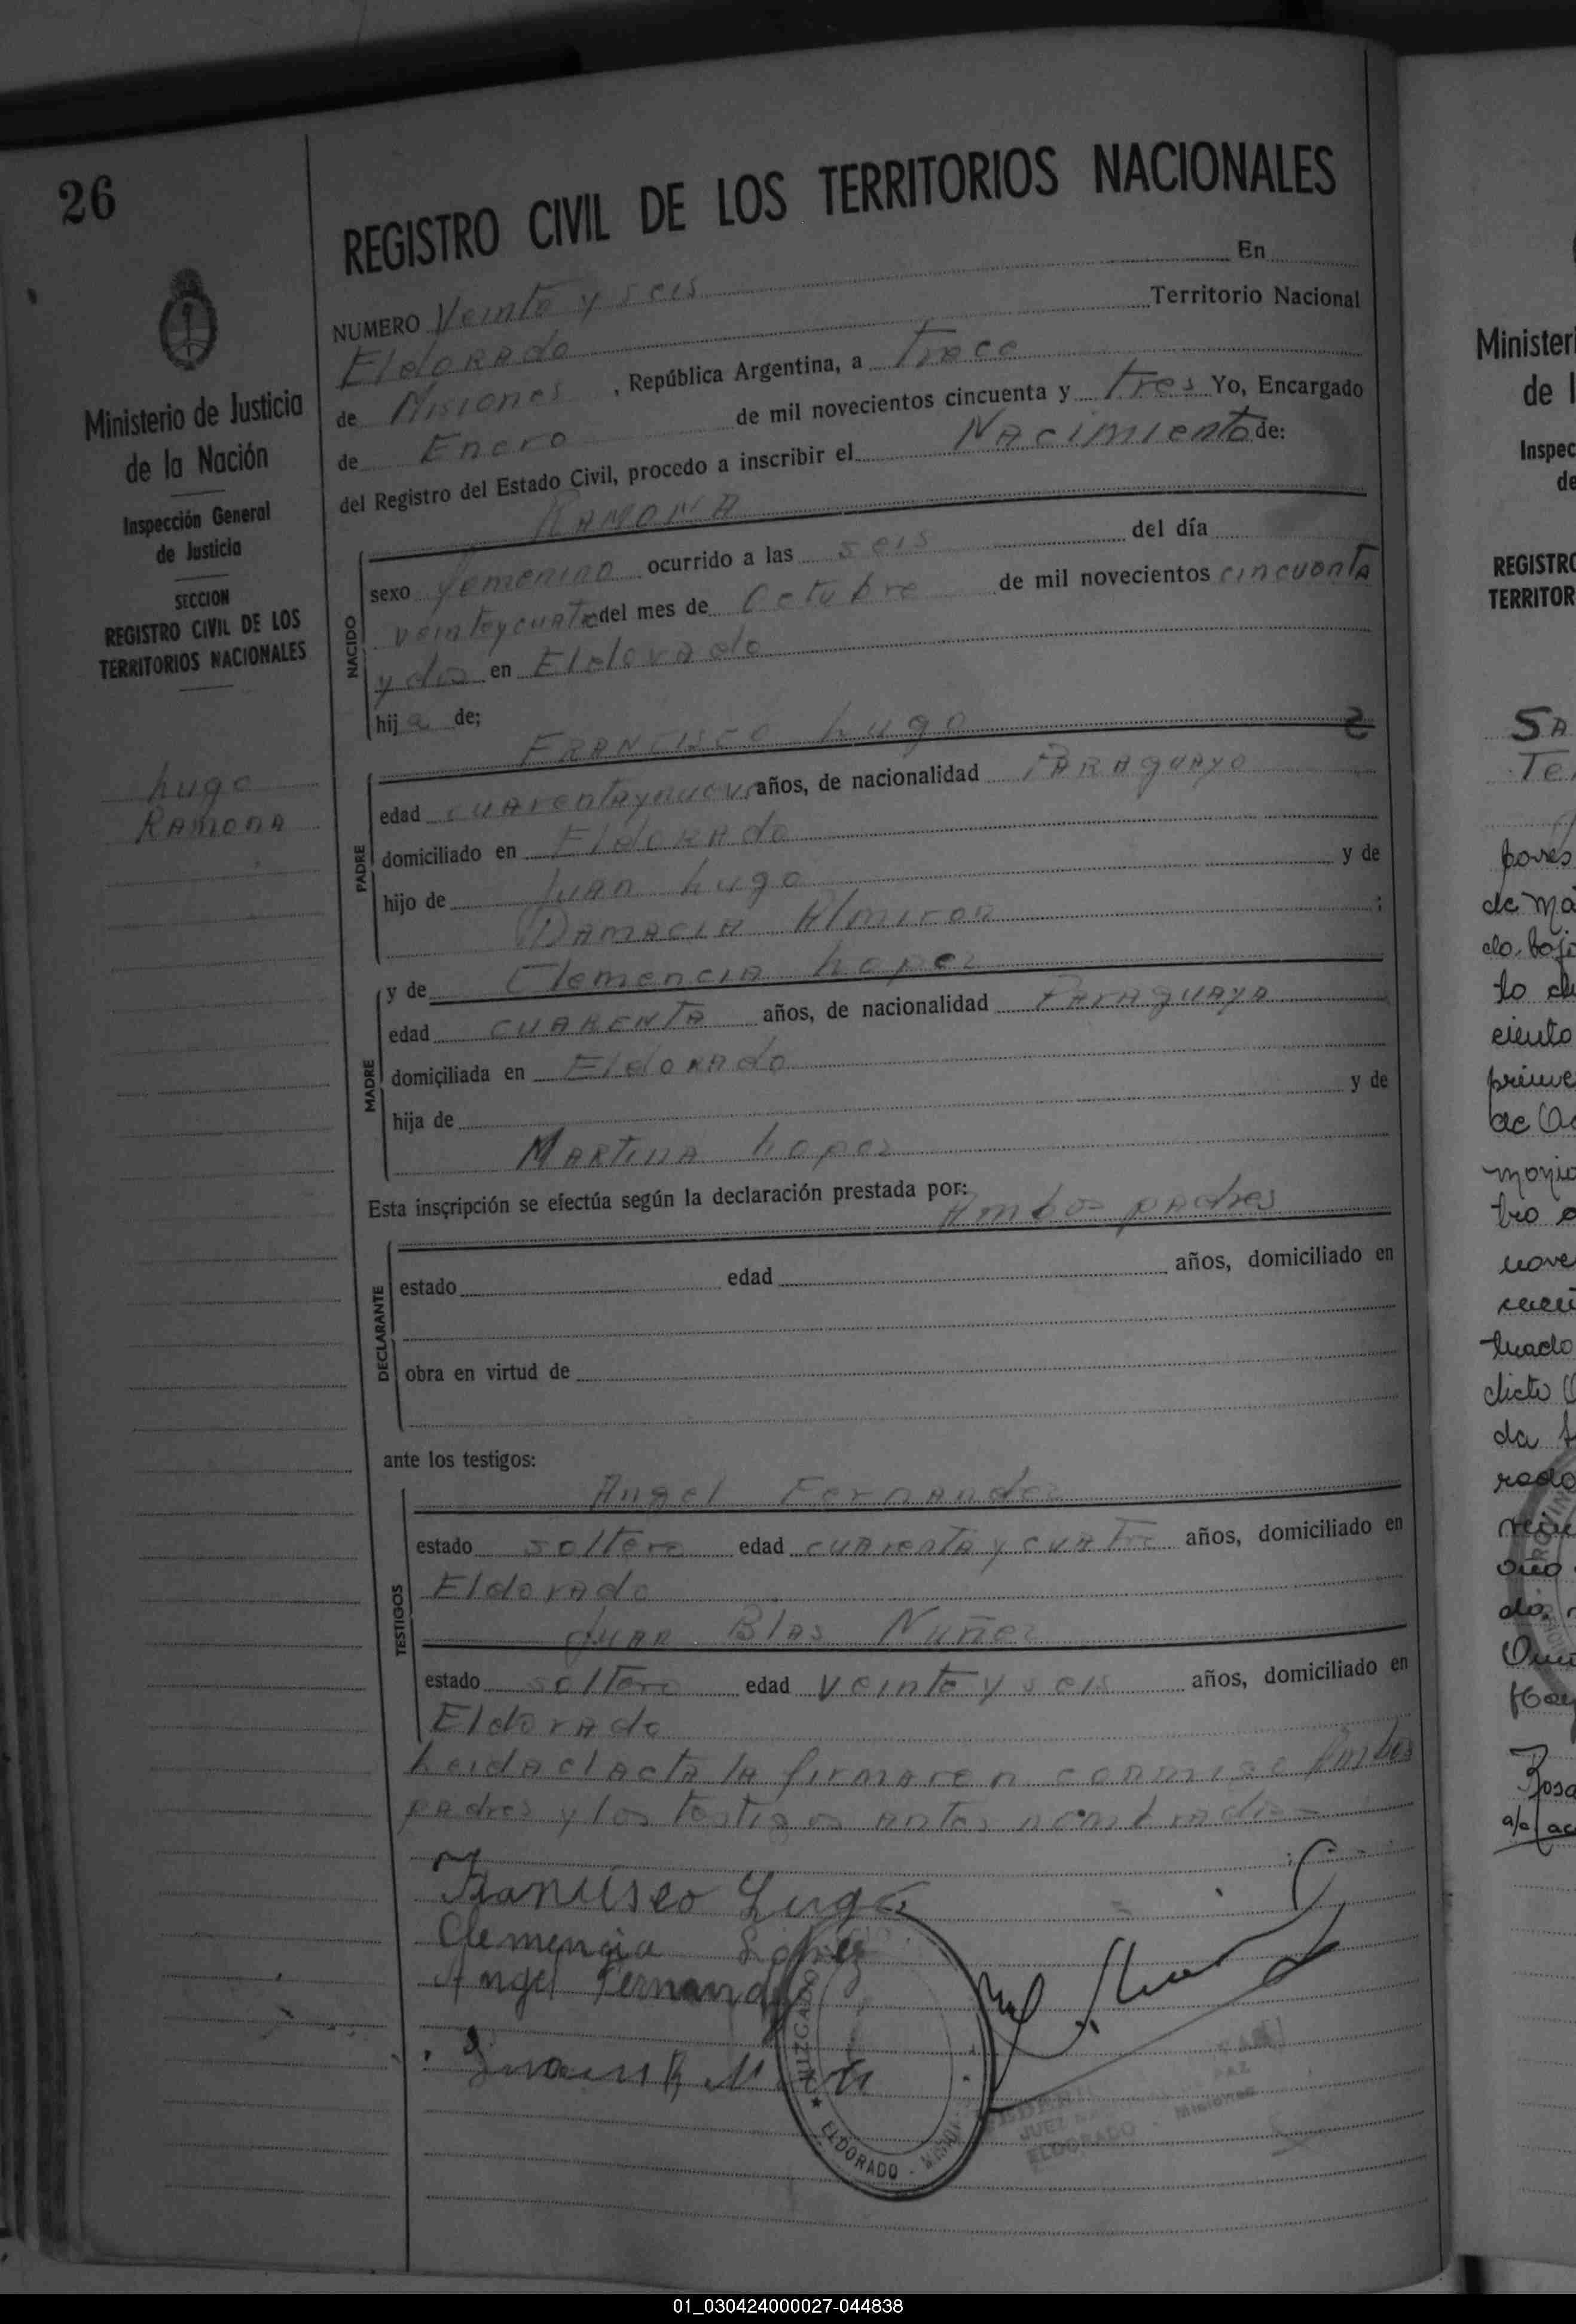 26
Ministerio de Justicia
de la Nación
Inspección General
de Justicia
SECCION
REGISTRO CIVIL DE LOS
TERRITORIOS NACIONALES
Lugo
Ramona
REGISTRO CIVIL DE LOS TERRITORIOS NACIONALES
NUMERO Veinte y seis En
Eldorado Territorio Nacional
de Misiones, República Argentina, a Trece
de Enero de mil novecientos cincuenta y Tres Yo, Encargado
del Registro del Estado Civil, procedo a inscribir el Nacimiento de:
RAMONA
NACIDO
sexo femenino ocurrido a las seis del día
veinteycuatro del mes de Octubre de mil novecientos cincuenta
y dos en Eldorado
hija de;
Francisco Lugo
PADRE
edad cuarentaynueve años, de nacionalidad Paraguayo
domiciliado en Eldorado
hijo de Juan Lugo y de
Damacia Almiron ;
MADRE
y de Clemencia Lopez
edad cuarenta años, de nacionalidad Paraguaya
domiciliada en Eldorado
hija de y de
Martina Lopez
Esta inscripción se efectúa según la declaración prestada por:
Ambos padres
DECLARANTE
estado edad años, domiciliado en
obra en virtud de
ante los testigos:
TESTIGOS
Angel Fernandez
estado soltero edad cuarenta y cuatro años, domiciliado en
Eldorado
Juan Blas Nuñez
estado soltero edad veinte y seis años, domiciliado en
Eldorado
Leida el acta la firmaron conmigo Ambos
padres y los testigos antes nombrados
Francisco Lugo
Clemencia Lopez
Angel Fernandez
ELDORADO
JUEZ PAZ
ELDORADO - Misiones
Minister
de l
Inspec
de
REGISTRO
TERRITOR
01_030424000027-044838